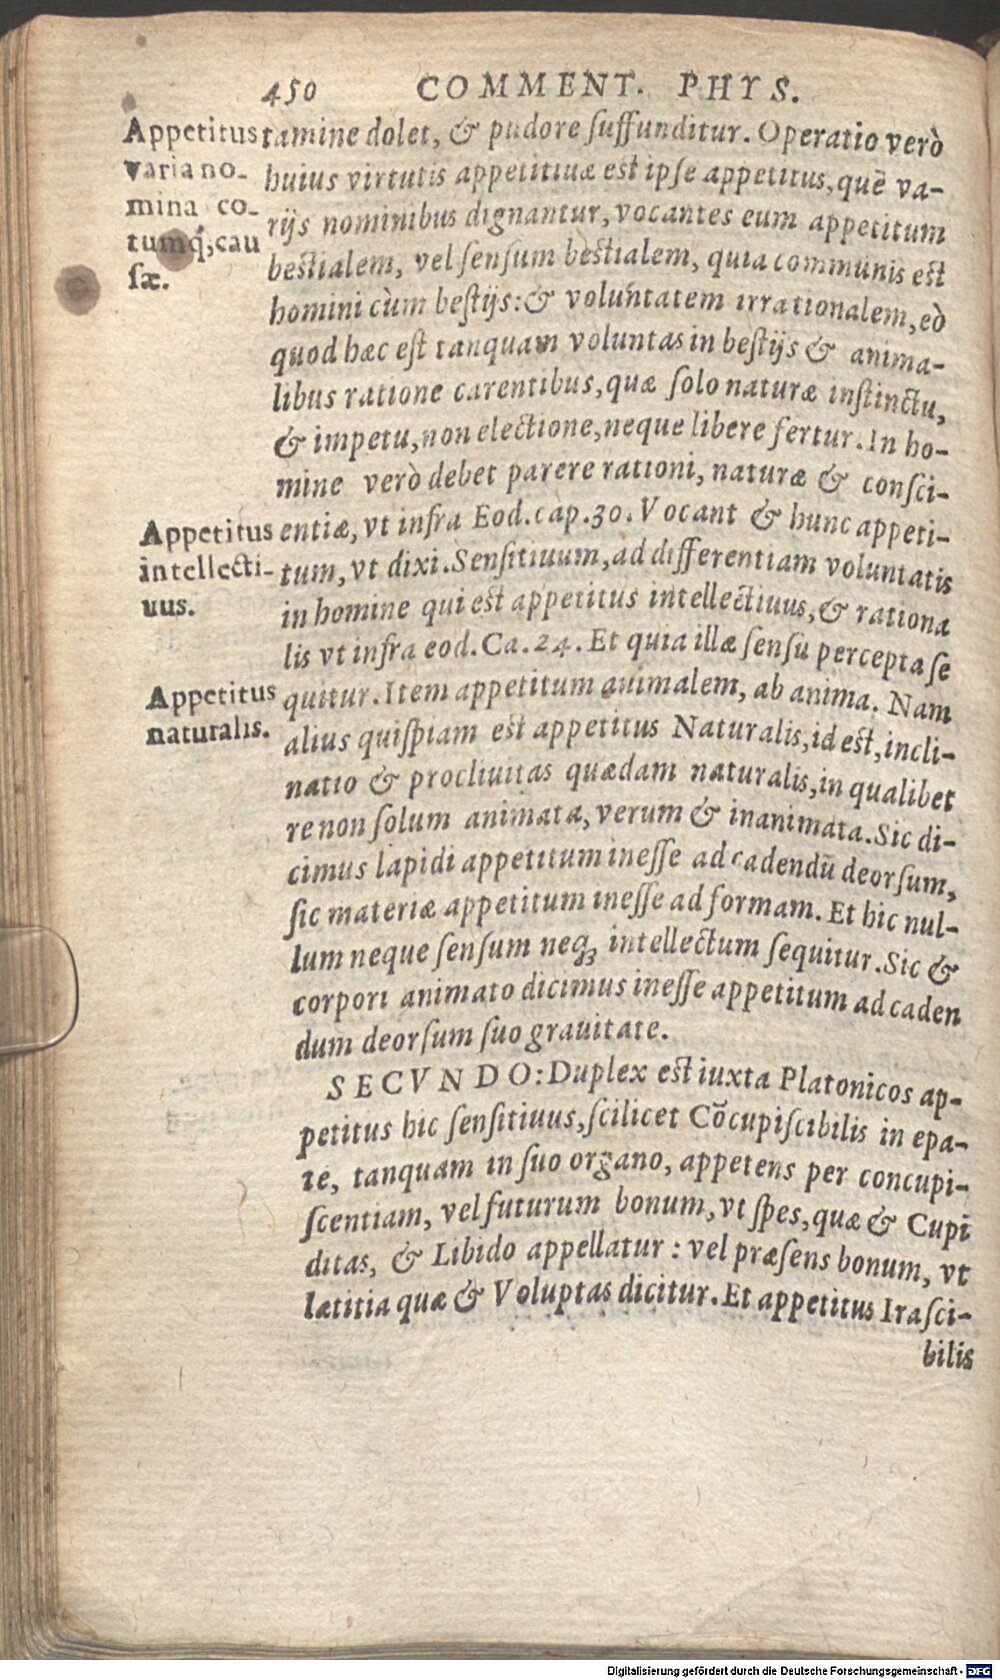 450 COMMENT. PHYS.
Appetitus
varia no-
mina eo-
tumq́;cau
ſæ.
tamine dolet, & pudore ſuffunditur. Operatio verò
huius virtutis appetitiuæ est ipſe appetitus, quē va-
rijs nominibus dignantur, vocantes eum appetitum
bestialem, vel ſenſum bestialem, quia communis est
homini cùm beſtijs: & voluntatem irrationalem, eò
quod hæc eſt tanquam voluntas in beſtijs & anima-
libus ratione carentibus, quæ ſolo naturæ inſtinctu,
& impetu, non electione, neque libere fertur. In ho-
mine verò debet parere rationi, naturæ & conſci-
Appetitus
intellecti-
uus.
entiæ, vt infra Eod. cap. 30. Vocant & hunc appeti-
tum, vt dixi. Senſitiuum, ad differentiam voluntatis
in homine qui est appetitus intellectiuus, & rationa
lis vt infra eod. Ca. 24. Et quia illæ ſenſu percepta ſe
Appetitus
naturalis.
quitur. Item appetitum animalem, ab anima. Nam
alius quiſpiam est appetitus Naturalis, id est, incli-
natio & procliuitas quædam naturalis, in qualibet
re non ſolum animata, verum & inanimata. Sic di-
cimus lapidi appetitum ineſſe ad cadendū deorſum,
ſic materiæ appetitum ineſſe ad formam. Et hic nul-
lum neque ſenſum neqꝫ intellectum ſequitur. Sic &
corpori animato dicimus ineſſe appetitum ad caden
dum deorſum ſuo grauitate.
SECVNDO: Duplex est iuxta Platonicos ap-
petitus hic ſenſitiuus, ſcilicet Cōcupiſcibilis in epa-
te, tanquam in ſuo organo, appetens per concupi-
ſcentiam, vel futurum bonum, vt ſpes, quæ & Cupi
ditas, & Libido appellatur: vel præſens bonum, vt
lætitia quæ & Voluptas dicitur. Et appetitus Iraſci-
bilis
Digitalisierung gefördert durch die Deutsche Forschungsgemeinschaft - DFG